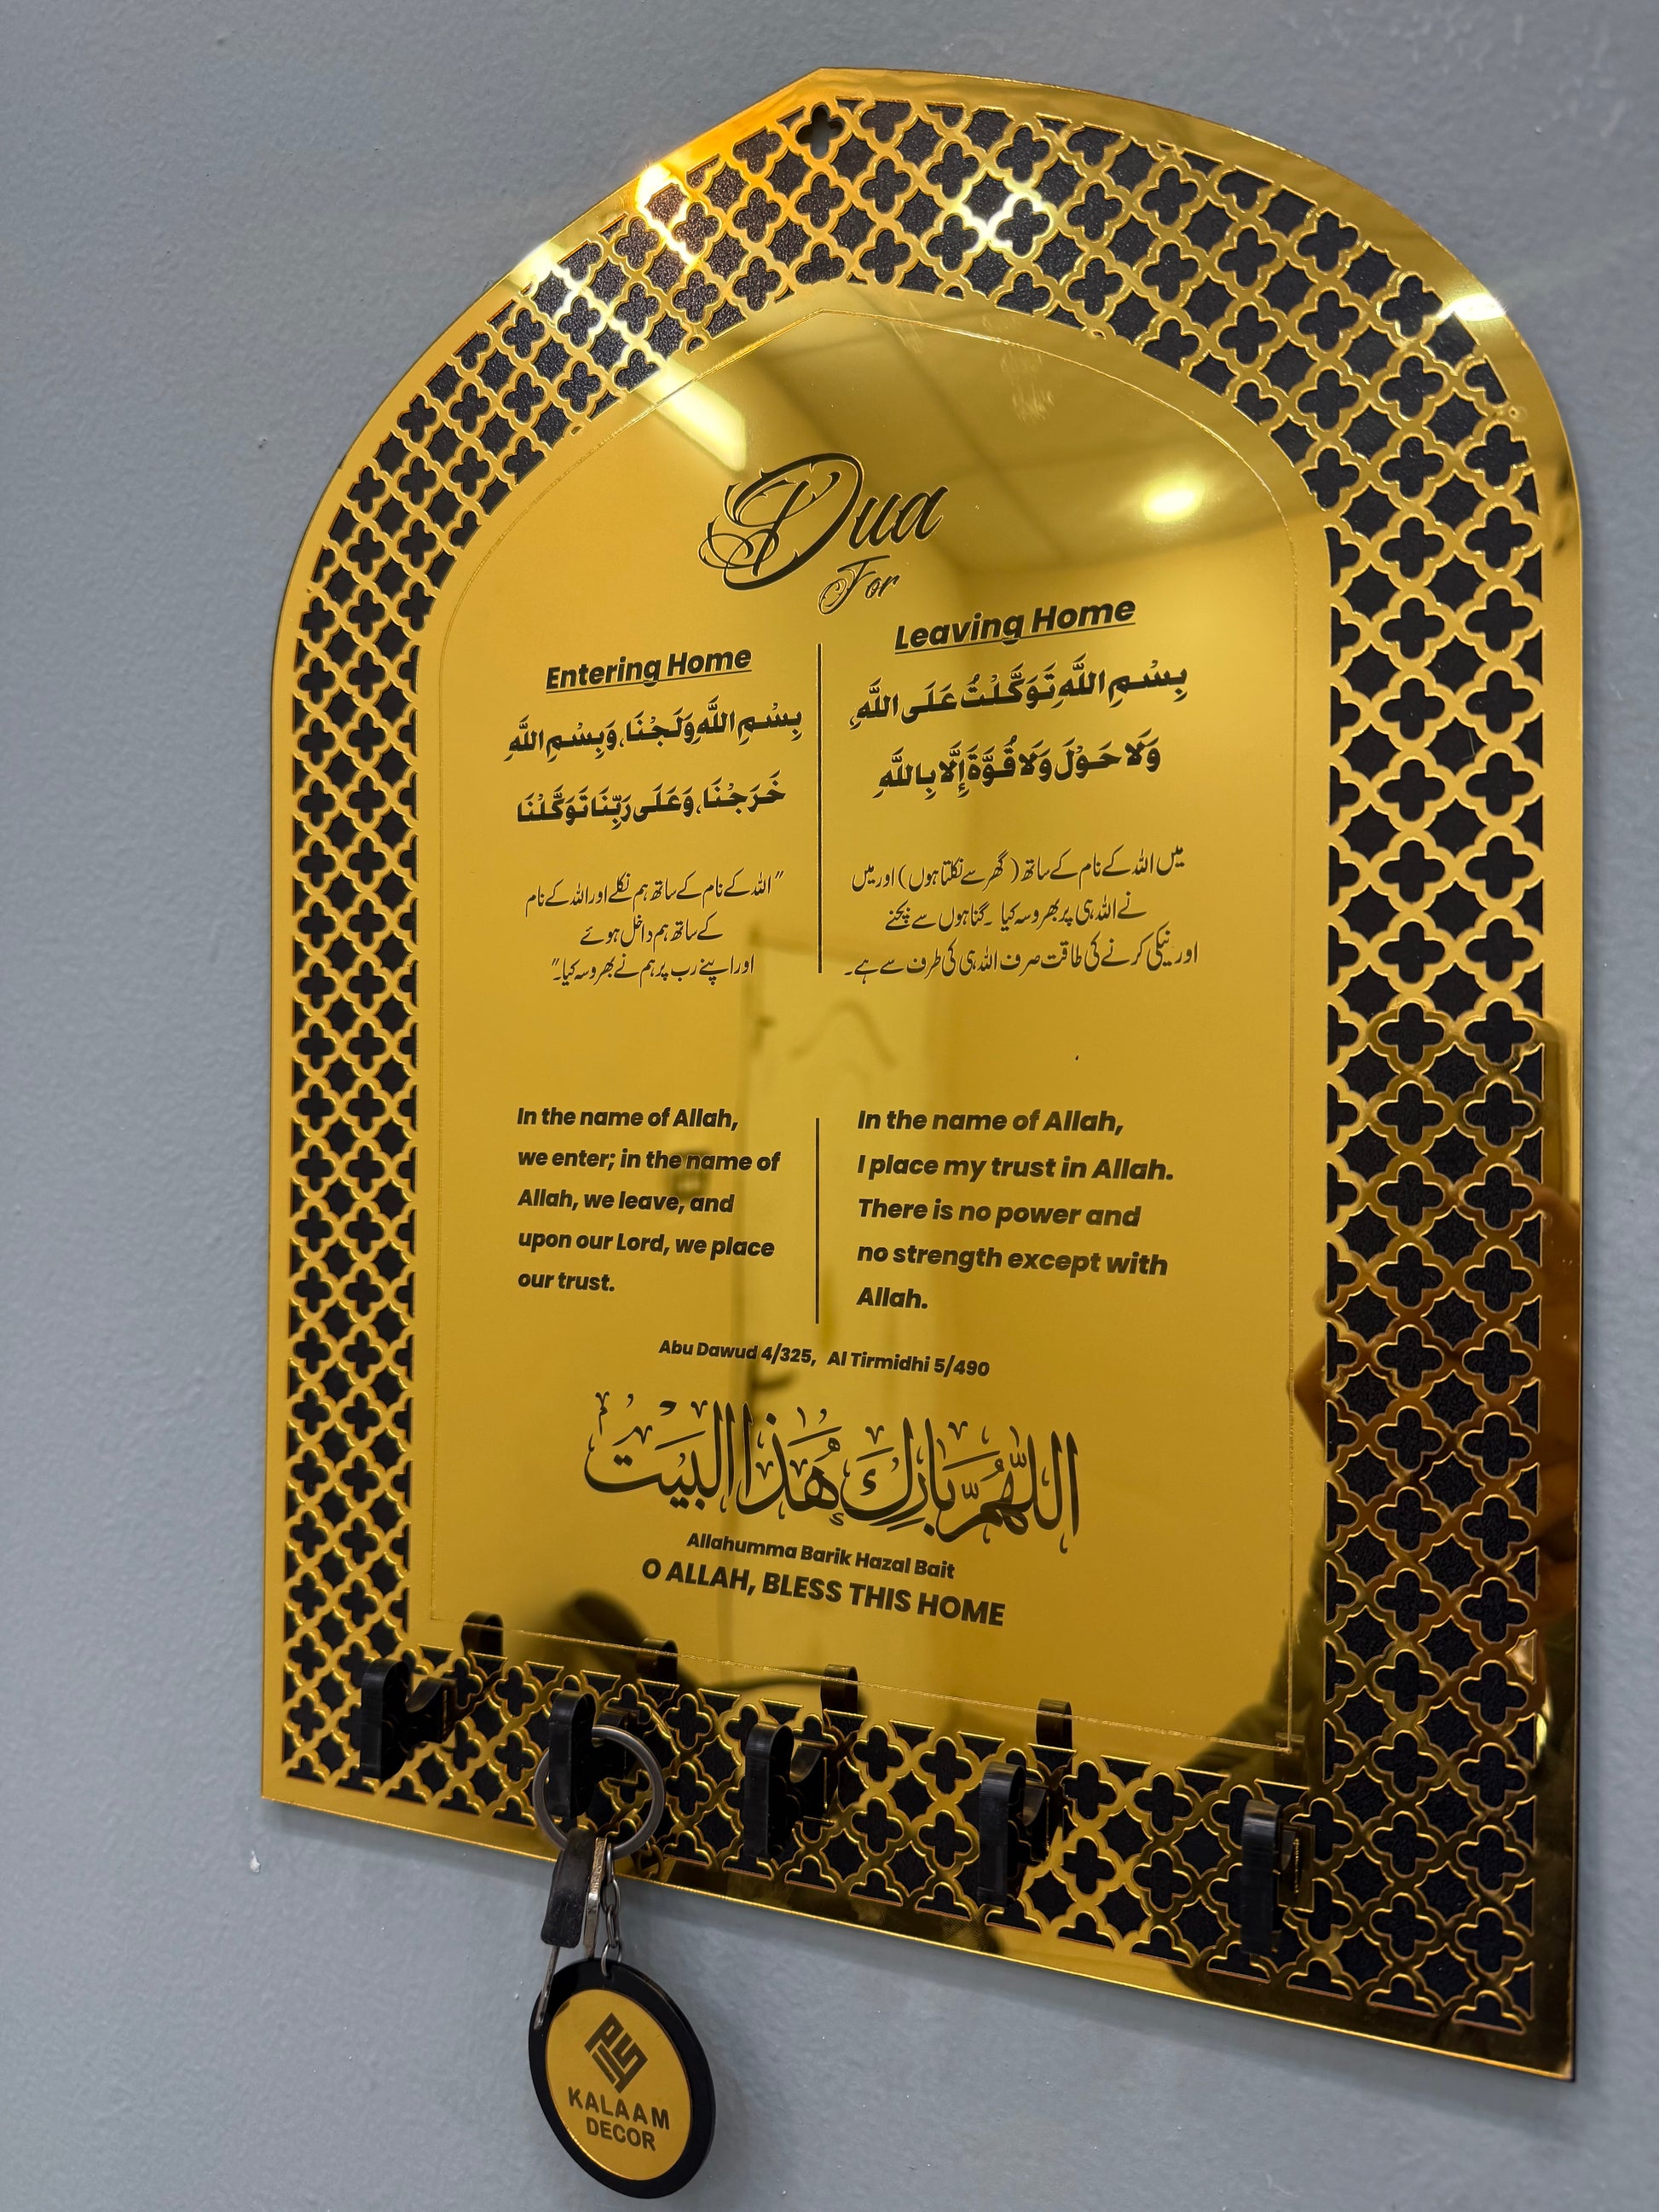 Dua
For
Entering Home
بِسْمِ اللَّهِ وَلَجْنَا، وَبِسْمِ اللَّهِ
خَرَجْنَا، وَعَلَى رَبِّنَا تَوَكَّلْنَا
"اللہ کے نام کے ساتھ ہم نکلے اور اللہ کے نام
کے ساتھ ہم داخل ہوئے
اور اپنے رب پر ہم نے بھروسہ کیا۔"
Leaving Home
بِسْمِ اللَّهِ تَوَكَّلْتُ عَلَى اللَّهِ،
وَلَا حَوْلَ وَلَا قُوَّةَ إِلَّا بِاللَّهِ
میں اللہ کے نام کے ساتھ (گھر سے نکلتا ہوں) اور میں
نے اللہ ہی پر بھروسہ کیا۔ گناہوں سے بچنے
اور نیکی کرنے کی طاقت صرف اللہ ہی کی طرف سے ہے۔
In the name of Allah,
we enter; in the name of
Allah, we leave, and
upon our Lord, we place
our trust.
In the name of Allah,
I place my trust in Allah.
There is no power and
no strength except with
Allah.
Abu Dawud 4/325, Al Tirmidhi 5/490
اللَّهُمَّ بَارِكْ هَذَا الْبَيْت
Allahumma Barik Hazal Bait
O ALLAH, BLESS THIS HOME
KALAAM
DECOR